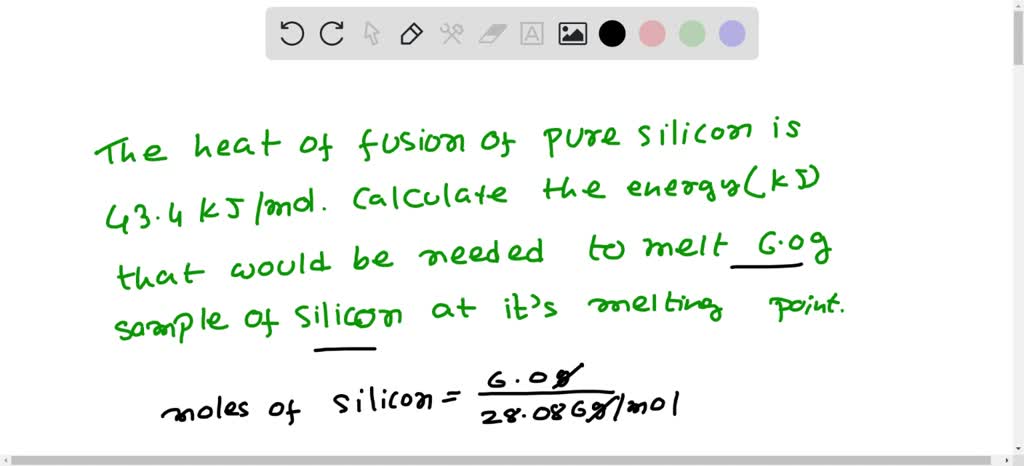 The heat of fusion of pure silicon is
43.4 KJ/mol. Calculate the energy(KJ)
that would be needed to melt 6.0g
sample of silicon at it's melting point.
moles of silicon = 6.0g / 28.086g/mol